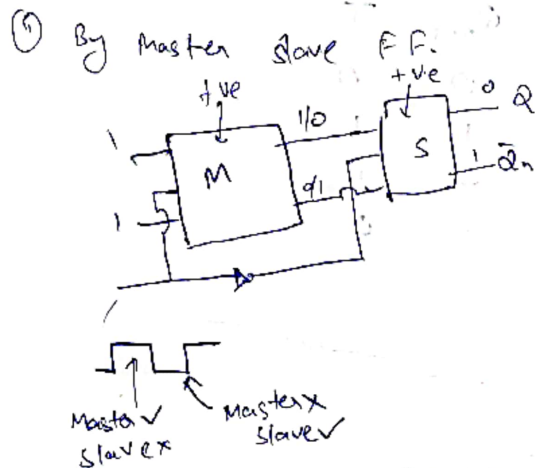 ① By Master slave F F.
+ve
+ve
1
1
M
1/0
0/1
S
0 Q
1 Q̄n
Master ✓
slave x
Master x
slave ✓